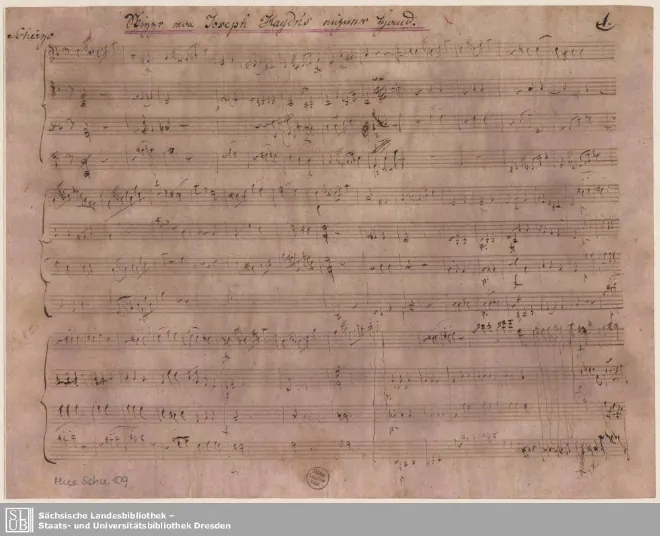 Skizze von Joseph Haydn's eigener Hand.
1.
Scherzo
Mus. Schu. 109
SLUB
Sächsische Landesbibliothek –
Staats- und Universitätsbibliothek Dresden